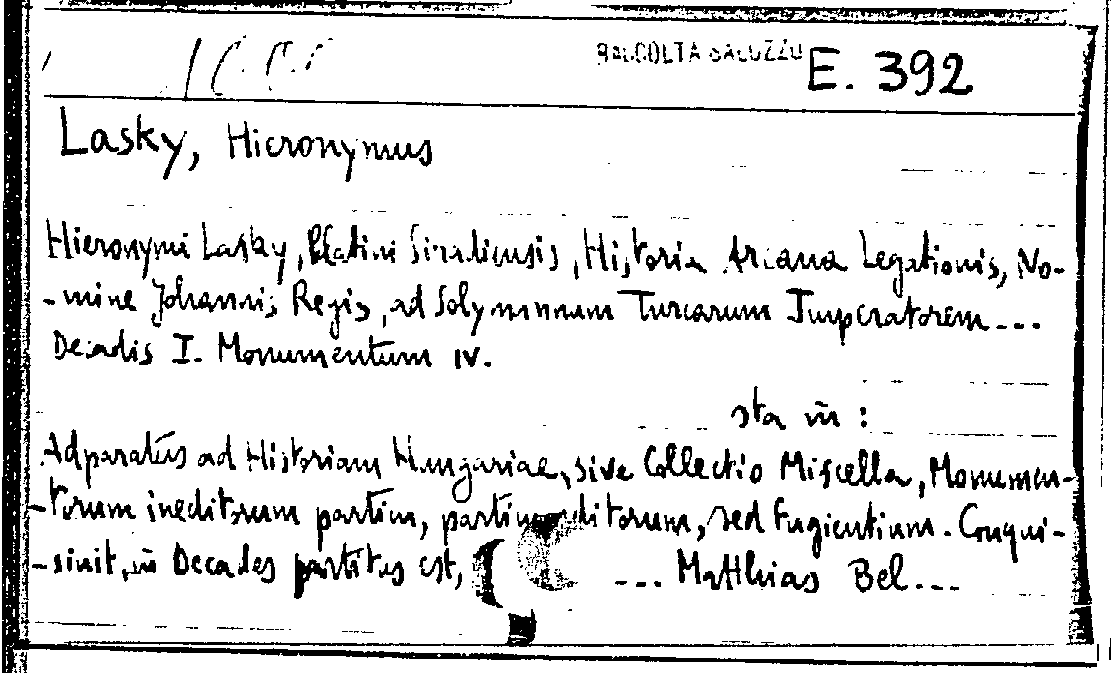 RACCOLTA SALUZZO E. 392
Lasky, Hieronymus
Hieronymi Lasky, Palatini Siradiensis, Historia Arcana Legationis, No-
-mine Johannis Regis, ad Solymannum Turcarum Imperatorem ...
Decadis I. Monumentum IV.
sta in :
Adparatus ad Historiam Hungariae, sive Collectio Miscella, Monumen-
-torum ineditorum partim, partim editorum, sed fugientium. Conqui-
-sivit, in Decades partitus est, ... Matthias Bel ...